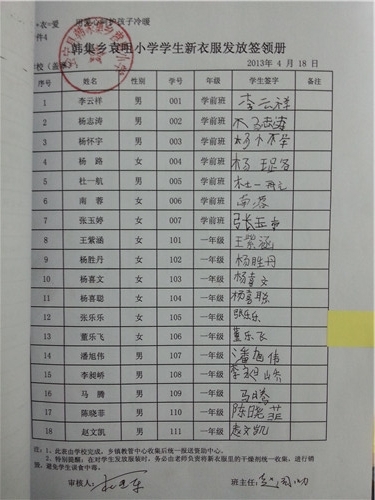 衣+爱
件4
韩集乡袁咀小学学生新衣服发放签领册
2013年 4 月 18 日
序号 姓名 性别 学号 年级 学生签字 备注
1 李云祥 男 001 学前班 李云祥
2 杨志涛 男 002 学前班 杨志涛
3 杨怀宇 男 003 学前班
4 杨路 女 004 学前班 杨路
5 杜一航 男 005 学前班 杜一航
6 南蓉 女 006 学前班 南蓉
7 张玉婷 女 007 学前班 张玉
8 王紫涵 女 101 一年级 王紫涵
9 杨胜丹 女 102 一年级 杨胜丹
10 杨喜文 女 103 一年级 杨喜文
11 杨喜聪 女 104 一年级 杨喜聪
12 张乐乐 女 105 一年级 张乐乐
13 董乐飞 女 106 一年级 董乐飞
14 潘旭伟 男 107 一年级 潘旭伟
15 李昶峤 男 108 一年级 李昶峤
16 马腾 男 109 一年级 马腾
17 陈晓菲 女 110 一年级 陈晓菲
18 赵文凯 男 111 一年级 赵文凯
注：1、此表由学校完成，乡镇教管中心收集后统一报送资助中心。
2、特别提醒：在对学生发放服装时，务必由老师负责将新衣服里的干燥剂统一收集，进行销
毁，避免学生误食中毒。
审核人： 班主任：